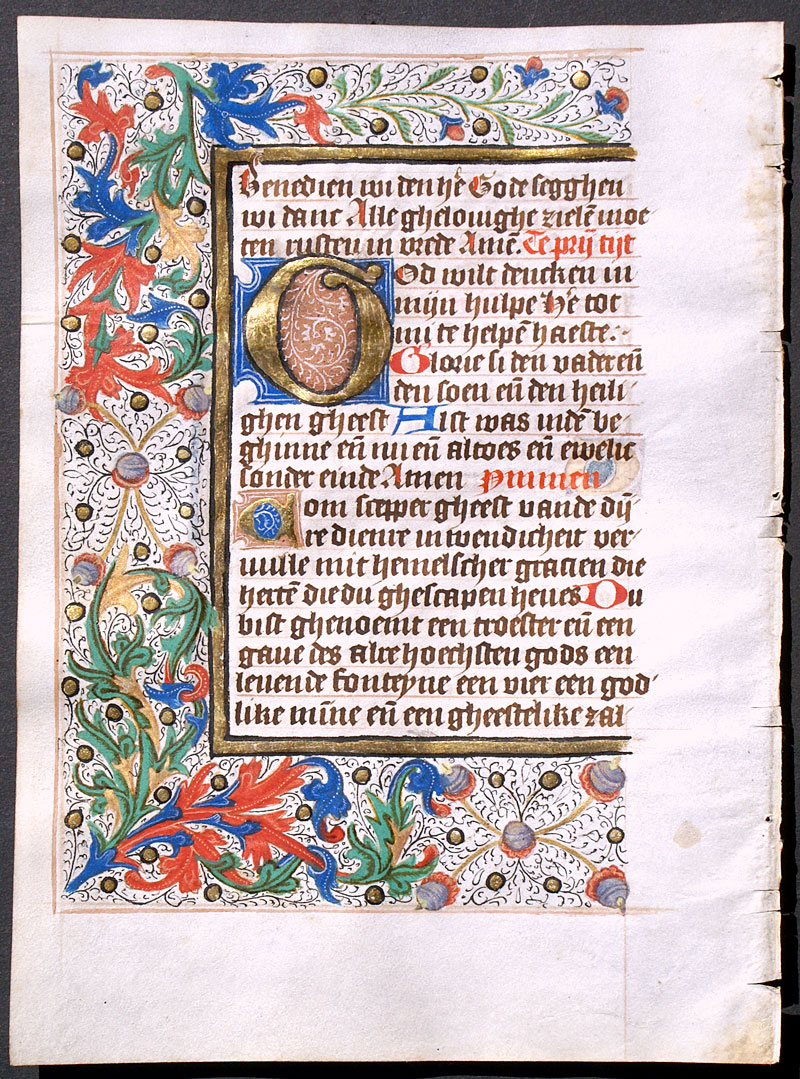 Benedien wi den he͛ Gode segghen
wi danc Alle ghelouighe zielē moe
ten rusten in vrede Amē. Te prijm tijt
God wilt dencken in
mijn hulpe He͛ tot
mi te helpē haeste.
Glorie si den vader eñ
den soen eñ den heili
ghen gheest Alst was indē be
ghinne eñ nu eñ altoes eñ ewelic
sonder einde Amen
Com scepper gheest vande dijn̄
re dienre inwendicheit ver
uulle mit hemelscher gracien die
hertē die du ghescapen heues Du
bist ghenoemt een troester eñ een
gaue des alre hoechsten gods een
leuende fonteyne een vier een god
like mīne eñ een gheestelike zal